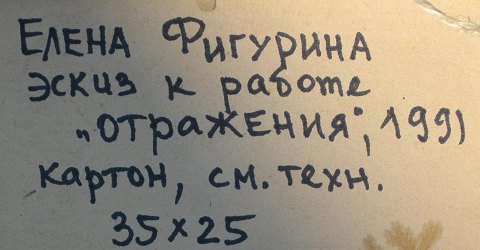 Елена Фигурина
эскиз к работе
„Отражения", 1991
картон, см. техн.
35×25